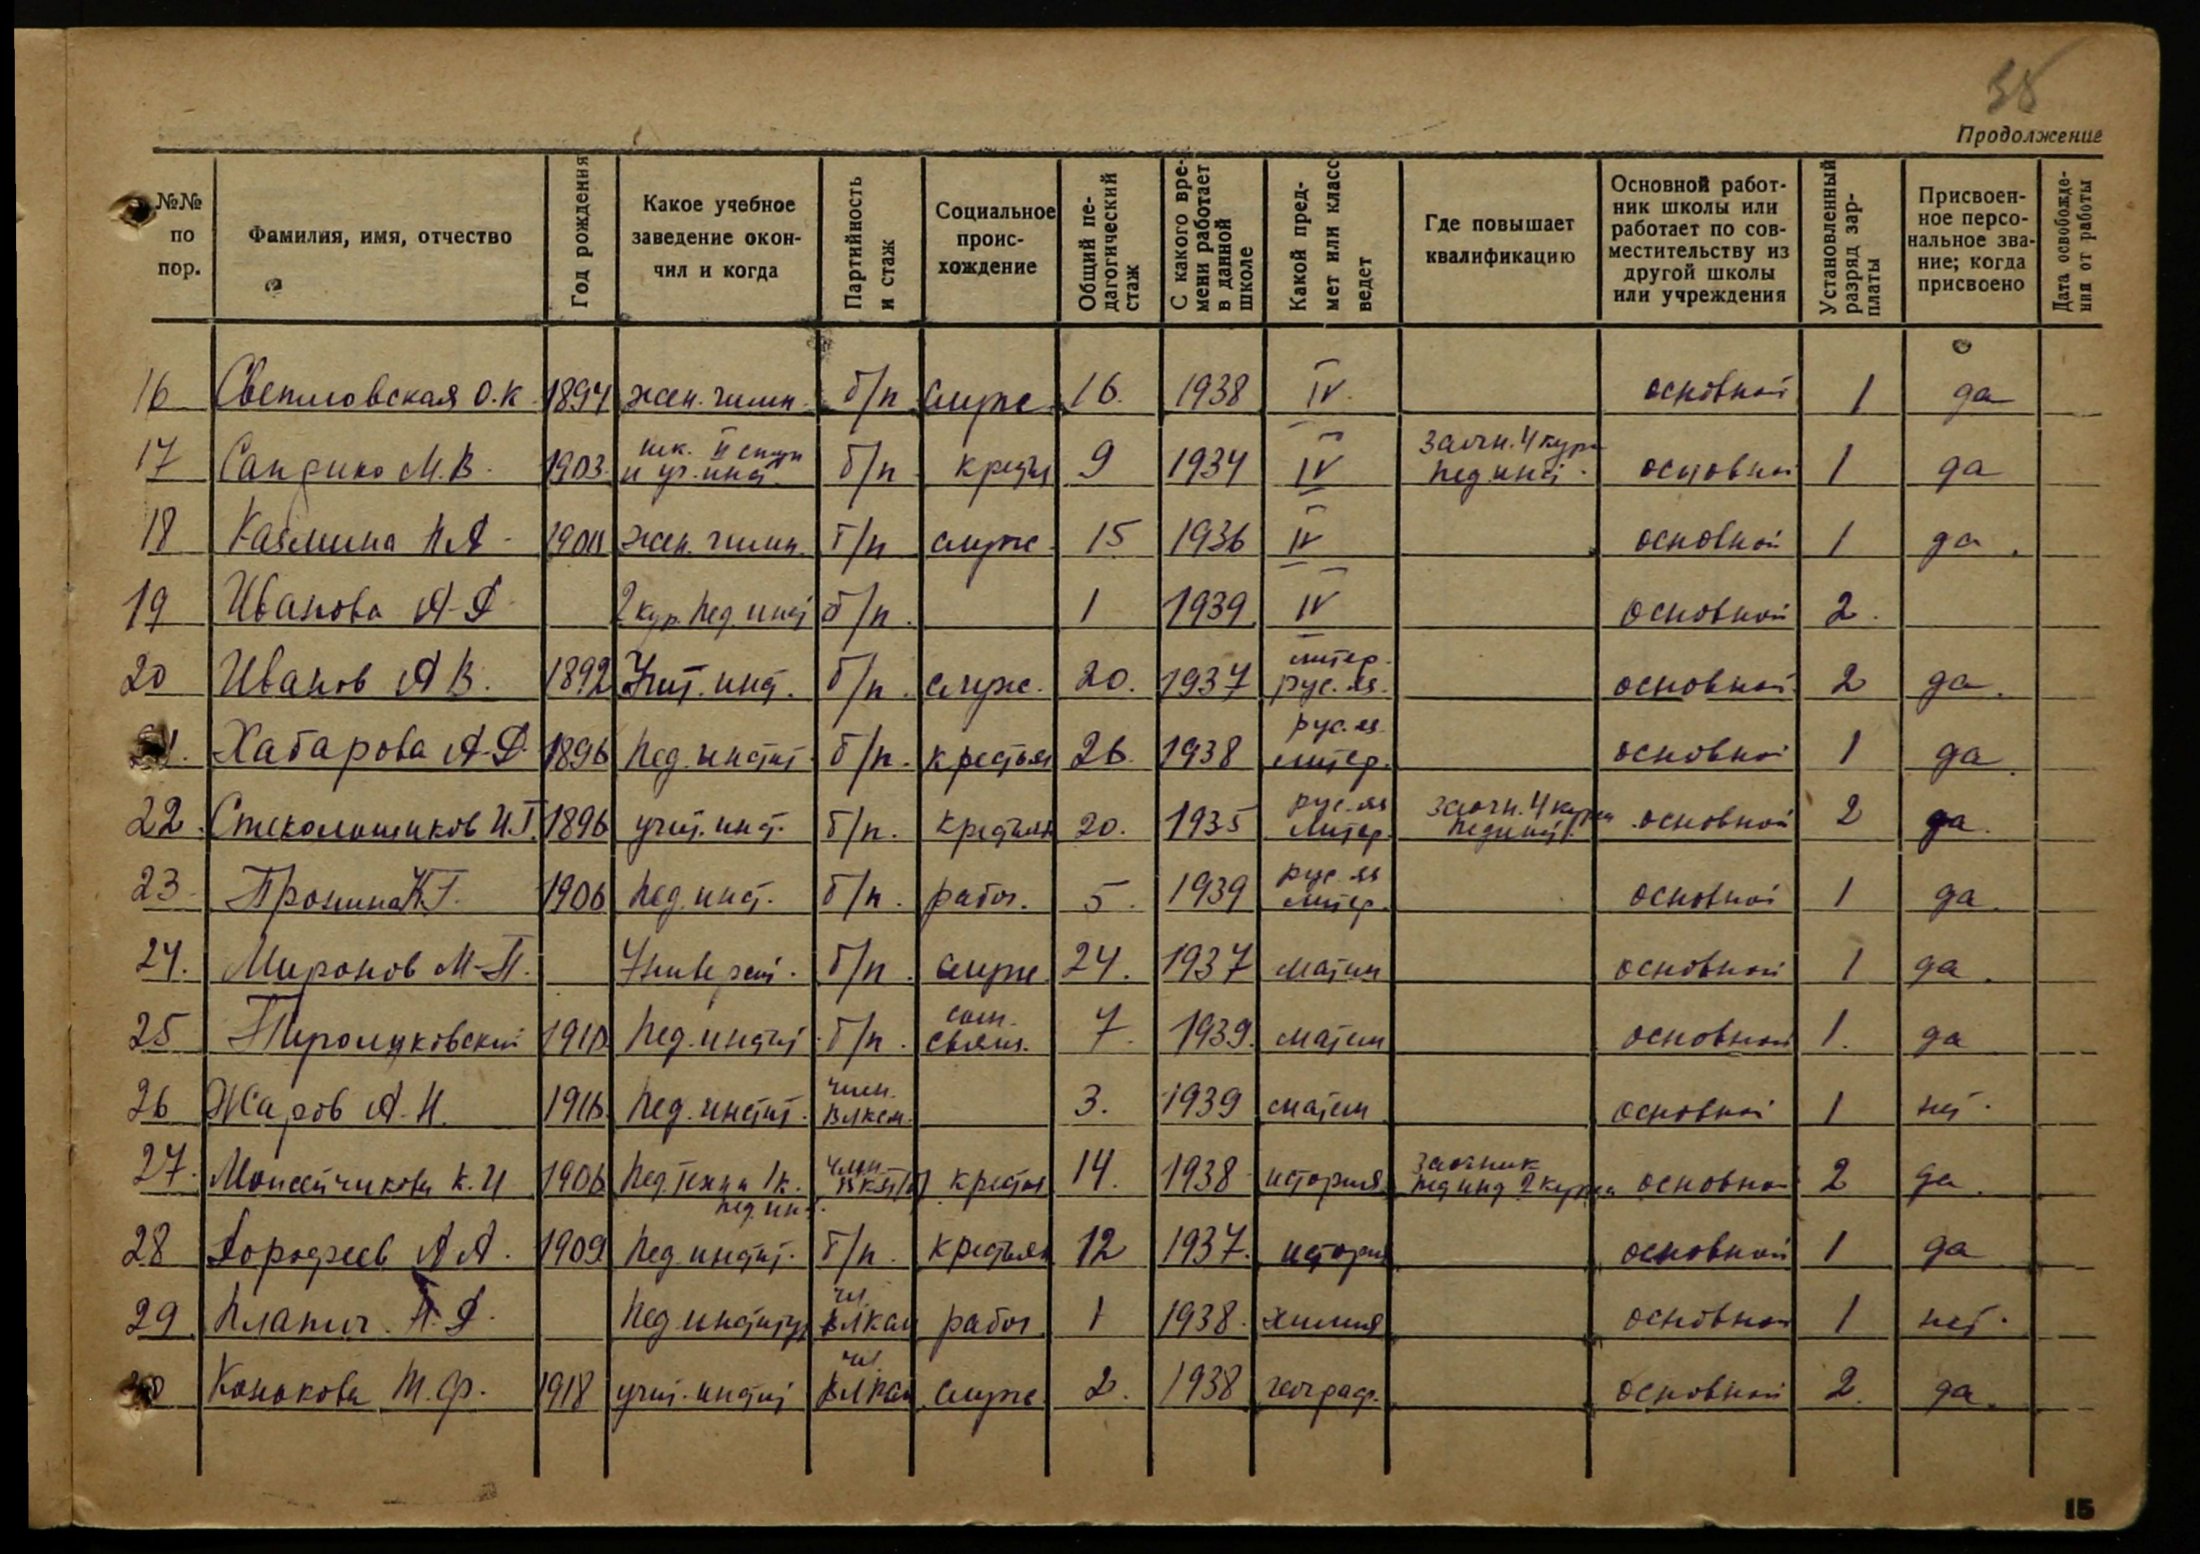 38
Продолжение
№№ по пор.
Фамилия, имя, отчество
Год рождения
Какое учебное заведение окончил и когда
Партийность и стаж
Социальное проис-хождение
Общий пе-дагогический стаж
С какого вре-мени работает в данной школе
Какой пред-мет или класс ведет
Где повышает квалификацию
Основной работ-ник школы или работает по сов-местительству из другой школы или учреждения
Установленный разряд зар-платы
Присвоен-ное персо-нальное зва-ние; когда присвоено
Дата освобожде-ния от работы
16 Светловская О.К 1894 жен. гимн. б/п служ 16. 1938 IV. основной 1 да
17 М.В. 1903 II и уч. инст. б/п крестьян 9 1934 IV заочн. 4 курс пед инст. основной 1 да
18 Н А жен. гимн. б/п служ 15 1936 IV основной 1 да.
19 Иванова А-Д 2 кур. пед. инст б/п. 1 1939 IV основной 2.
20 Иванов А В. 1892 Учит. инст. б/п. служ. 20. 1937 литер. рус. яз. основной 2 да.
21. Хабарова А-Д. 1896 пед. инстит б/п. крестьян 26. 1938 рус. яз. литер. основной 1 да.
22. Стекольщиков И.Г. 1896 учит. инст. б/п. крестьян 20. 1935 рус. яз литер. заочн. 4 курса пединст. основной 2 да.
23. Пронина К.Г. 1906 пед. инст. б/п. рабоч. 5. 1939 рус. яз литер. основной 1 да.
24. Миронов М-П. Университ. б/п. служ 24. 1937 матем основной 1 да.
25 1910 пед. инстит б/п. 7. 1939. матем основной 1. да
26 Жаров А. И. 1916 пед. инстит. член. ВЛКСМ. 3. 1939 матем основной 1 нет.
27. Моисейчикова К. И 1906 пед. техн и 1к. пед. ин. член ВКП(б) крестьян 14. 1938 история заочник пед инст 2 курса основной 2 да.
28 Дорофеев А А. 1909 пед. инстит. б/п. крестьян 12 1937. история основной 1 да
29 Д. пед институт чл. ВЛКСМ рабоч 1 1938. химия основной 1 нет.
30 Конокова Т. Ф. 1918 учит. инстит чл. ВЛКСМ служ 2. 1938 географ. основной 2. да.
15